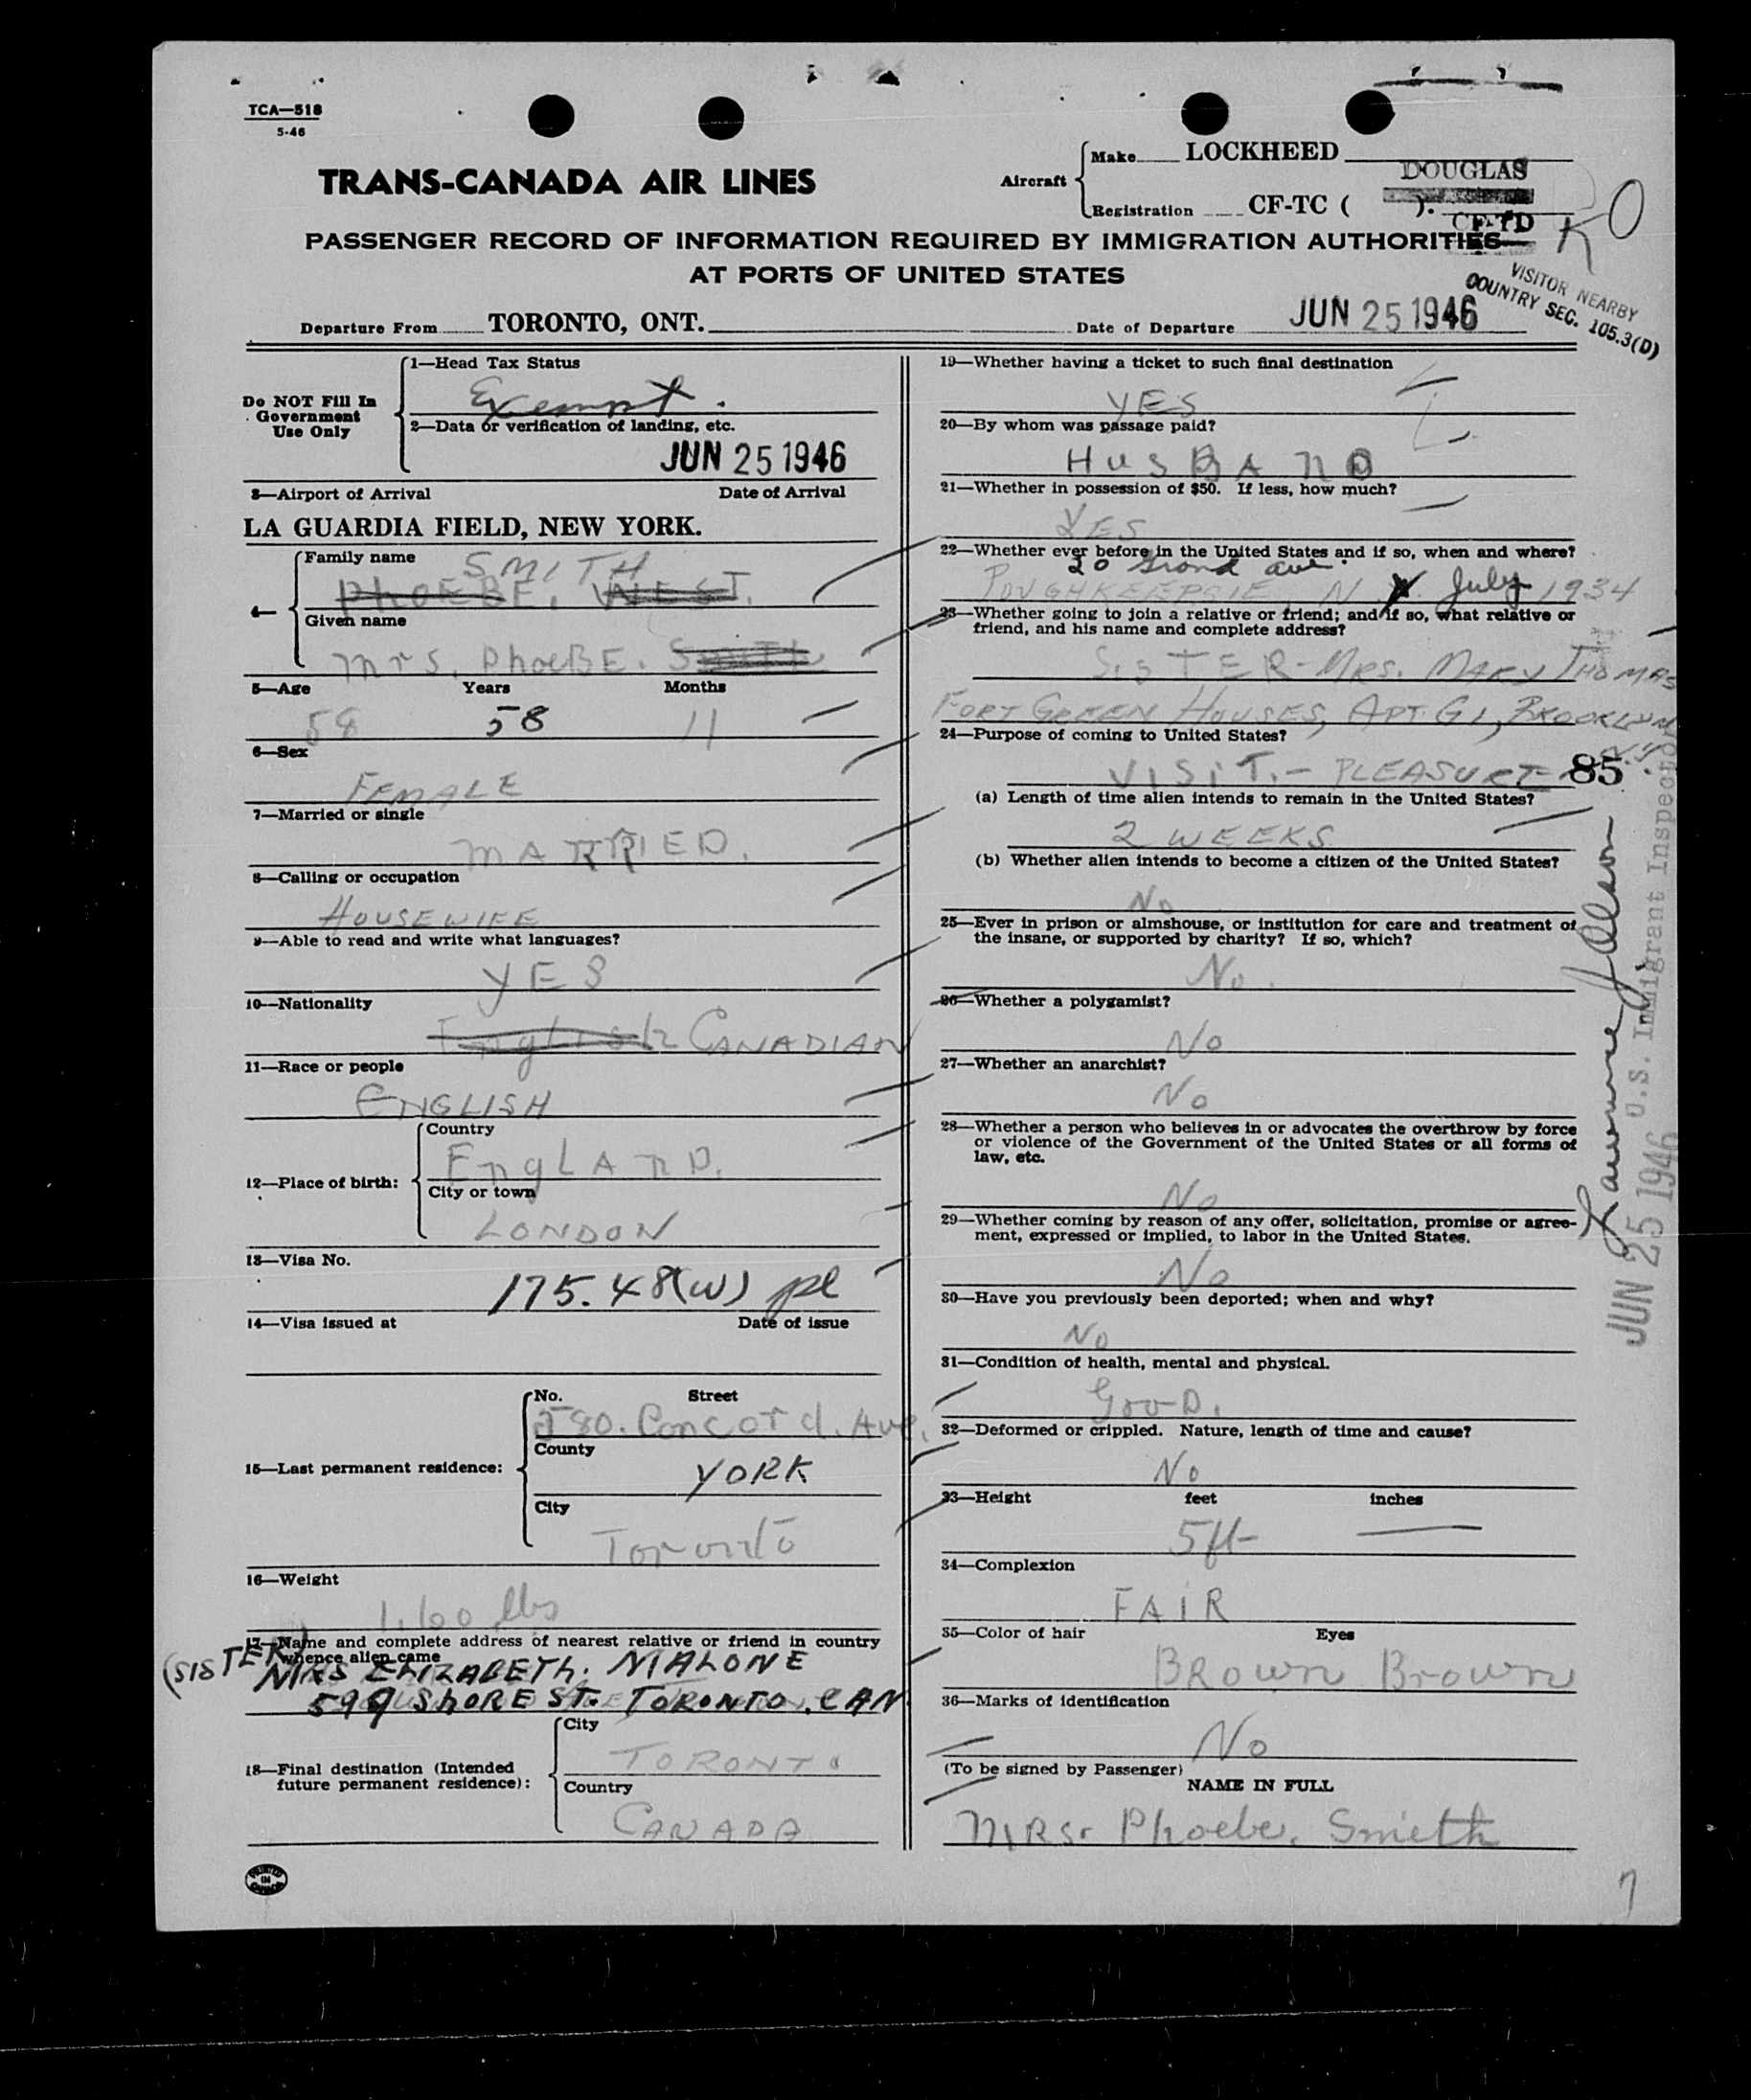 TCA—518
5-46
TRANS-CANADA AIR LINES
Aircraft
Make LOCKHEED
DOUGLAS
Registration CF-TC ( ).
CF-TD
KO
PASSENGER RECORD OF INFORMATION REQUIRED BY IMMIGRATION AUTHORITIES
AT PORTS OF UNITED STATES
VISITOR NEARBY
COUNTRY SEC. 105.3(D)
Departure From TORONTO, ONT. Date of Departure JUN 25 1946
Do NOT Fill In
Government
Use Only
1—Head Tax Status
Exempt.
2—Data or verification of landing, etc.
JUN 25 1946
3—Airport of Arrival Date of Arrival
LA GUARDIA FIELD, NEW YORK.
4—
Family name
SMITH
PhOEBE. WEST.
Given name
Mrs. PhoeBE. Smith
5—Age Years Months
58 58 11
6—Sex
FEMALE
7—Married or single
MARRIED.
8—Calling or occupation
HOUSEWIFE
9—Able to read and write what languages?
YES
10—Nationality
English CANADIAN
11—Race or people
ENGLISH
12—Place of birth:
Country
EnglAnD.
City or town
LONDON
13—Visa No.
175.48(W) pl
14—Visa issued at Date of issue
15—Last permanent residence:
No. Street
580. Concord. Ave.
County
YORK
City
Toronto
16—Weight
1.60 lbs
17—Name and complete address of nearest relative or friend in country
whence alien came
(SISTER) MRS ELIZABETH. MALONE
599 ShORE ST. TORONTO. CAN
18—Final destination (Intended
future permanent residence):
City
TORONTO
Country
CANADA
19—Whether having a ticket to such final destination
YES
20—By whom was passage paid?
HUSBAND
21—Whether in possession of $50. If less, how much?
YES
22—Whether ever before in the United States and if so, when and where?
20 Grand ave.
POUGHKEEPSIE, N.Y. July 1934
23—Whether going to join a relative or friend; and if so, what relative or
friend, and his name and complete address?
SISTER - MRS. MARY THOMAS
FORT GREEN HOUSES, APT. G1, BROOKLYN
N.Y.
24—Purpose of coming to United States?
VISIT. - PLEASURE 85
(a) Length of time alien intends to remain in the United States?
2 WEEKS
(b) Whether alien intends to become a citizen of the United States?
No
25—Ever in prison or almshouse, or institution for care and treatment of
the insane, or supported by charity? If so, which?
No.
26—Whether a polygamist?
No
27—Whether an anarchist?
No
28—Whether a person who believes in or advocates the overthrow by force
or violence of the Government of the United States or all forms of
law, etc.
No
29—Whether coming by reason of any offer, solicitation, promise or agree-
ment, expressed or implied, to labor in the United States.
No
30—Have you previously been deported; when and why?
No
31—Condition of health, mental and physical.
GooD.
32—Deformed or crippled. Nature, length of time and cause?
No
33—Height feet inches
5ft —
34—Complexion
FAIR
35—Color of hair Eyes
BRown Brown
36—Marks of identification
No
(To be signed by Passenger)
NAME IN FULL
MRS. Phoebe. Smieth
7
Lawrence
U.S. Immigrant Inspector
JUN 25 1946